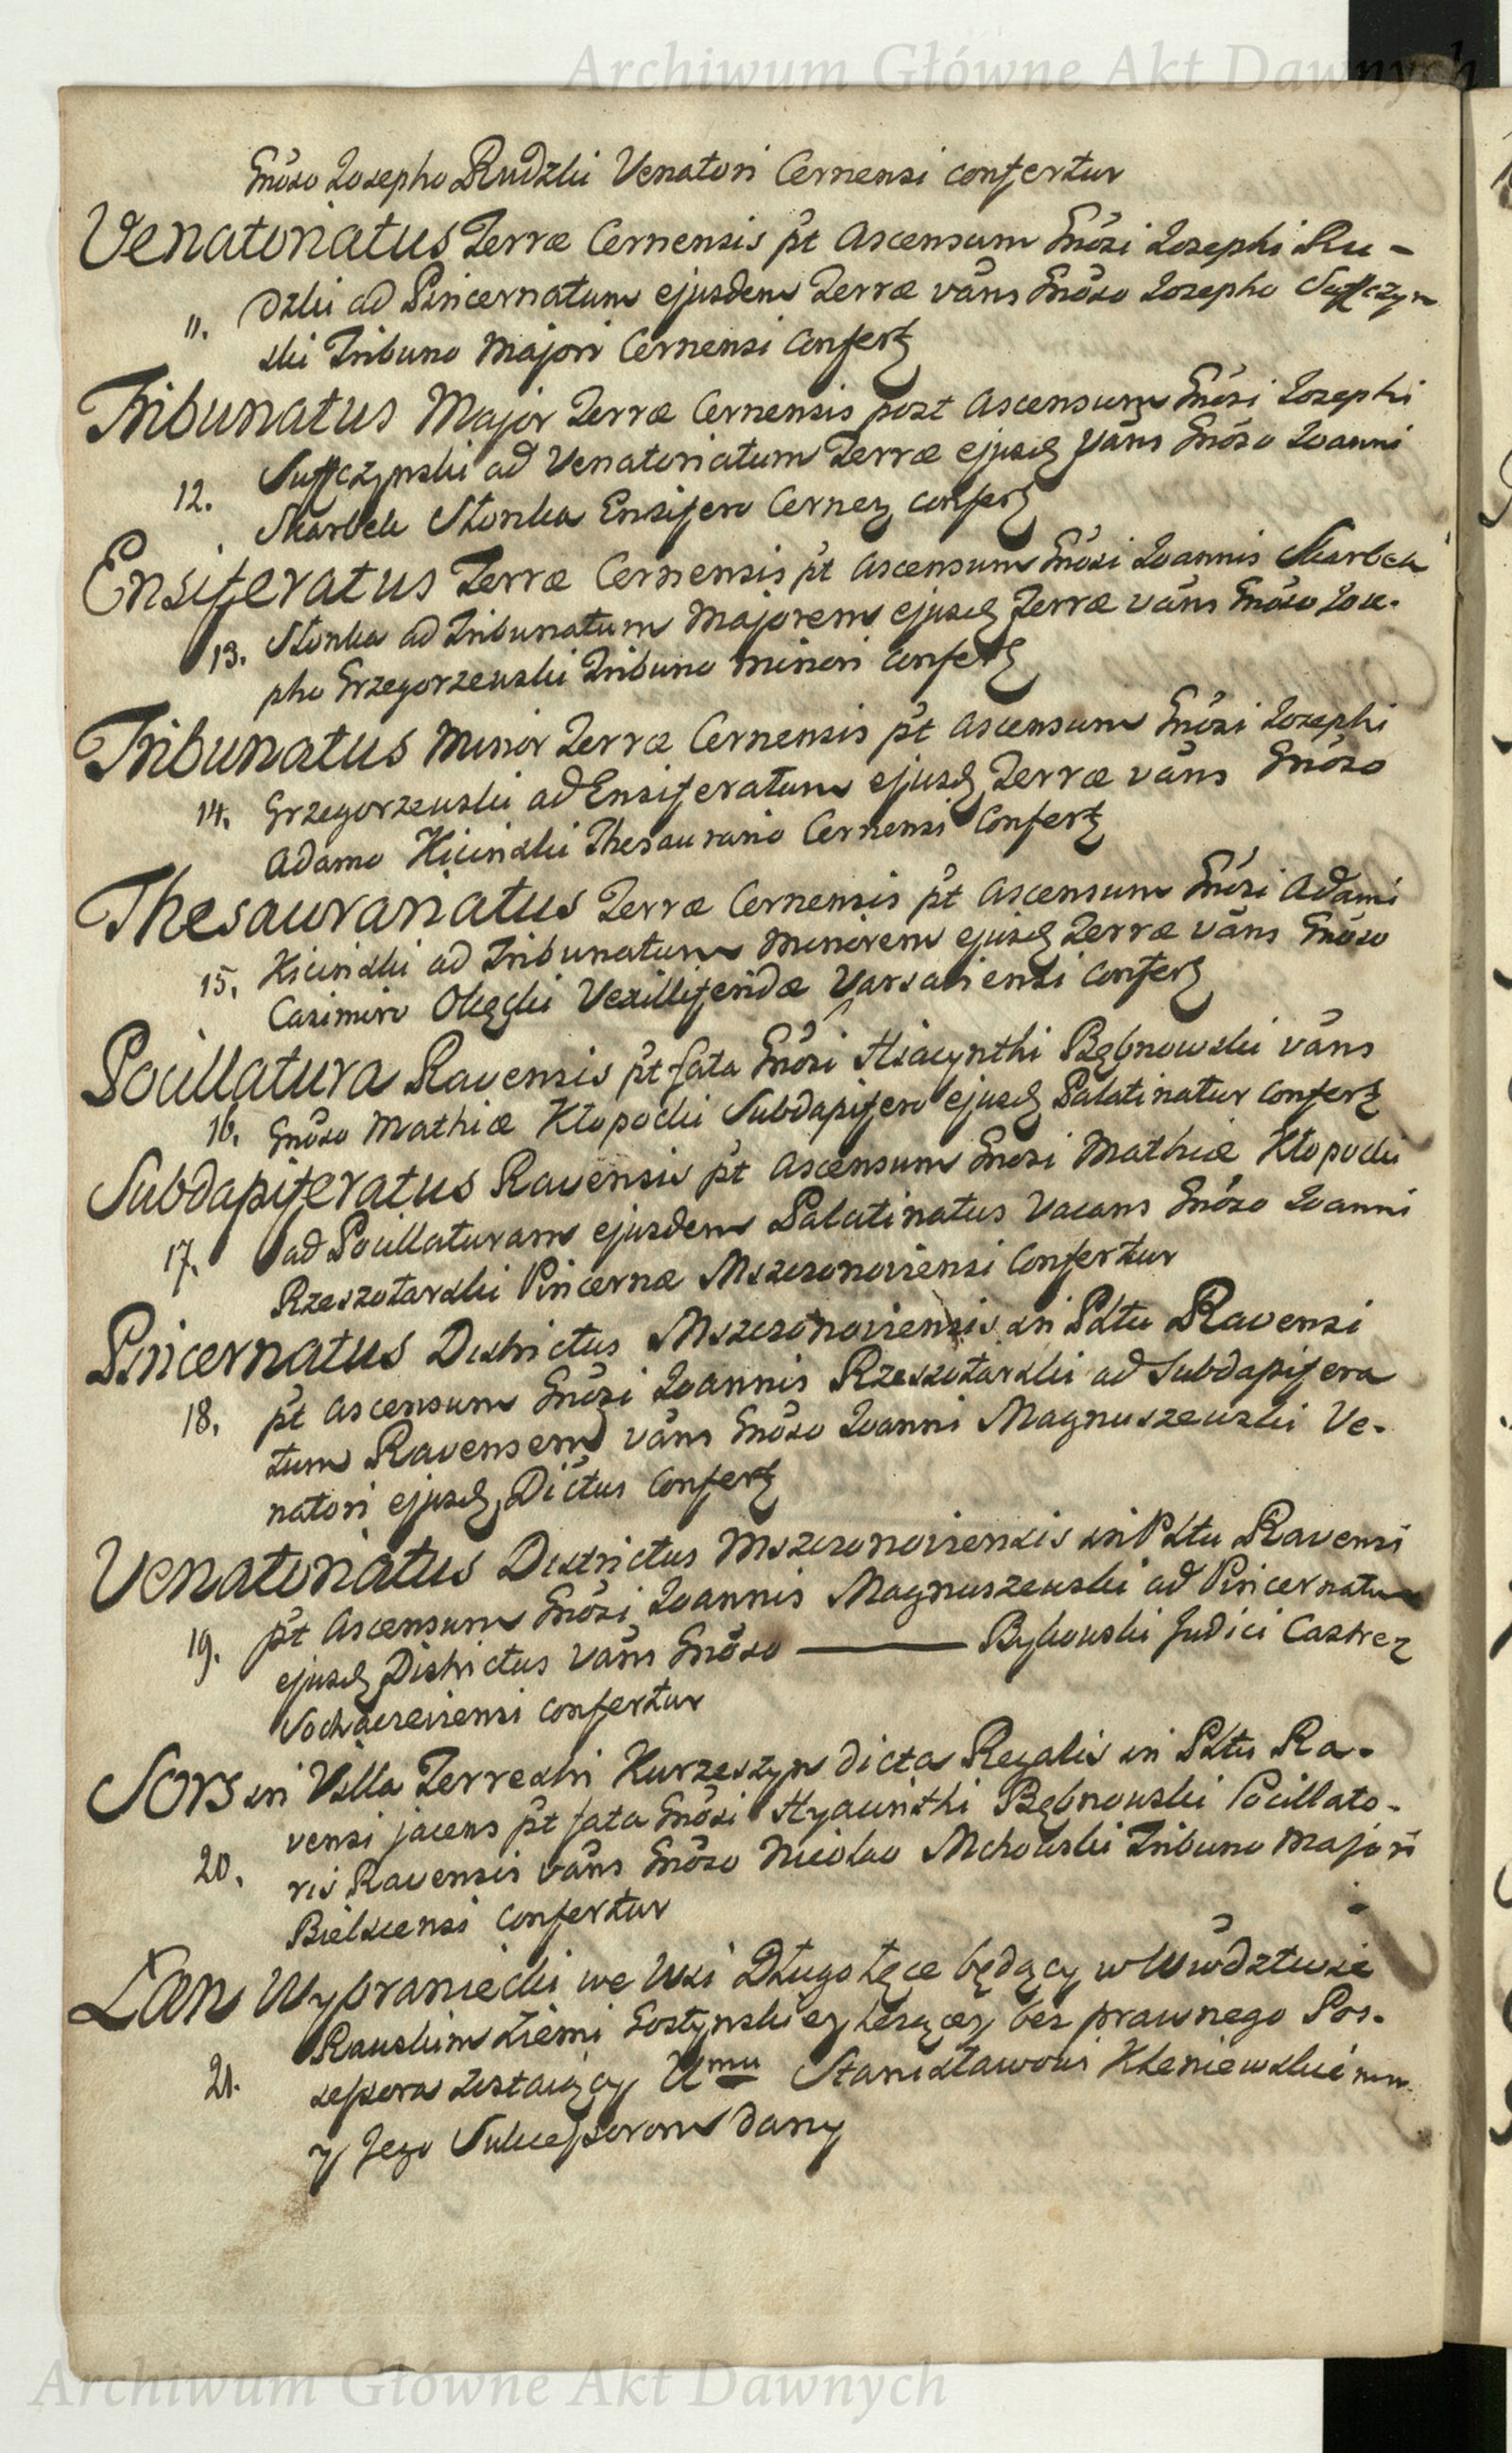 Archiwum Główne Akt Dawnych
Gnõso Josepho Rudzki Venatori Cernensi confertur
Venatoriatus Terræ Cernensis p̃t Ascensum Gnõsi Josephi Ru-
11. dzki ad Pincernatum ejusdem Terræ vãns Gnõso Josepho Suffczyn
ski Tribuno Majori Cernensi Confert
Tribunatus Major Terræ Cernensis post Ascensum Gnõsi Josephi
12. Suffczynski ad Venatoriatum Terræ ejusd vãns Gnõso Joanni
Skarbek Słonka Ensifero Cernen confert
Ensiferatus Terræ Cernensis p̃t Ascensum Gnõsi Joannis Skarbek
13. Słonka ad Tribunatum Majorem ejusd Terræ vãns Gnõso Jose-
pho Grzegorzewski Tribuno minori Confert
Tribunatus Minor Terræ Cernensis p̃t Ascensum Gnõsi Josephi
14. Grzegorzewski ad Ensiferatum ejusd Terræ vãns Gnõso
Adamo Kicinski Thesaurario Cernensi Confert
Thesaurariatus Terræ Cernensis p̃t Ascensum Gnõsi Adami
15. Kicinski ad Tribunatum Minorem ejusd Terræ vãns Gnõso
Casimiro Olędzki Vexilliferidæ Varsaviensi Confert
Pocillatura Ravensis p̃t fata Gnõsi Hiacynthi Bębnowski vãns
16. Gnõso Mathiæ Kłopocki Subdapifero ejusd Palatinatus Confert
Subdapiferatus Ravensis p̃t Ascensum Gnosi Mathiæ Kłopocki
17. ad Pocillaturam ejusdem Palatinatus Vacans Gnõso Joanni
Rzeszotarski Pincernæ Mszczonoviensi Confertur
Pincernatus Districtus Mszczonoviensis in Płtu Ravensi
18. p̃t Ascensum Gnõsi Joannis Rzeszotarski ad Subdapifera
tum Ravensem vãns Gnõso Joanni Magnuszewski Ve-
natori ejusd Dictus Confert
Venatoriatus Districtus Mszczonoviensis in Płtu Ravensi
19. p̃t Ascensum Gnõsi Joannis Magnuszewski ad Pincernatum
ejusd Districtus vãns Gnõso ——— Bykowski Judici Castren
Sochacreviensi confertur
Sors in Villa Terrestri Kurzeszyn dicta Regalis in Płtu Ra-
20. vensi jacens p̃t fata Gnõsi Hyacinthi Bębnowski Pocillato-
ris Ravensis vãns Gnõso Nicolao Mchowski Tribuno Majori
Bielscensi Confertur
Łan Wybraniecki we Wsi Długołęce będący w Wwództwie
21. Rawskim Ziemi Gostynskiey leżącey bez prawnego Pos-
sessora zostaiący Umu Stanisławowi Kleniewskiemu
y Jego Sukcessorom dany
Archiwum Główne Akt Dawnych